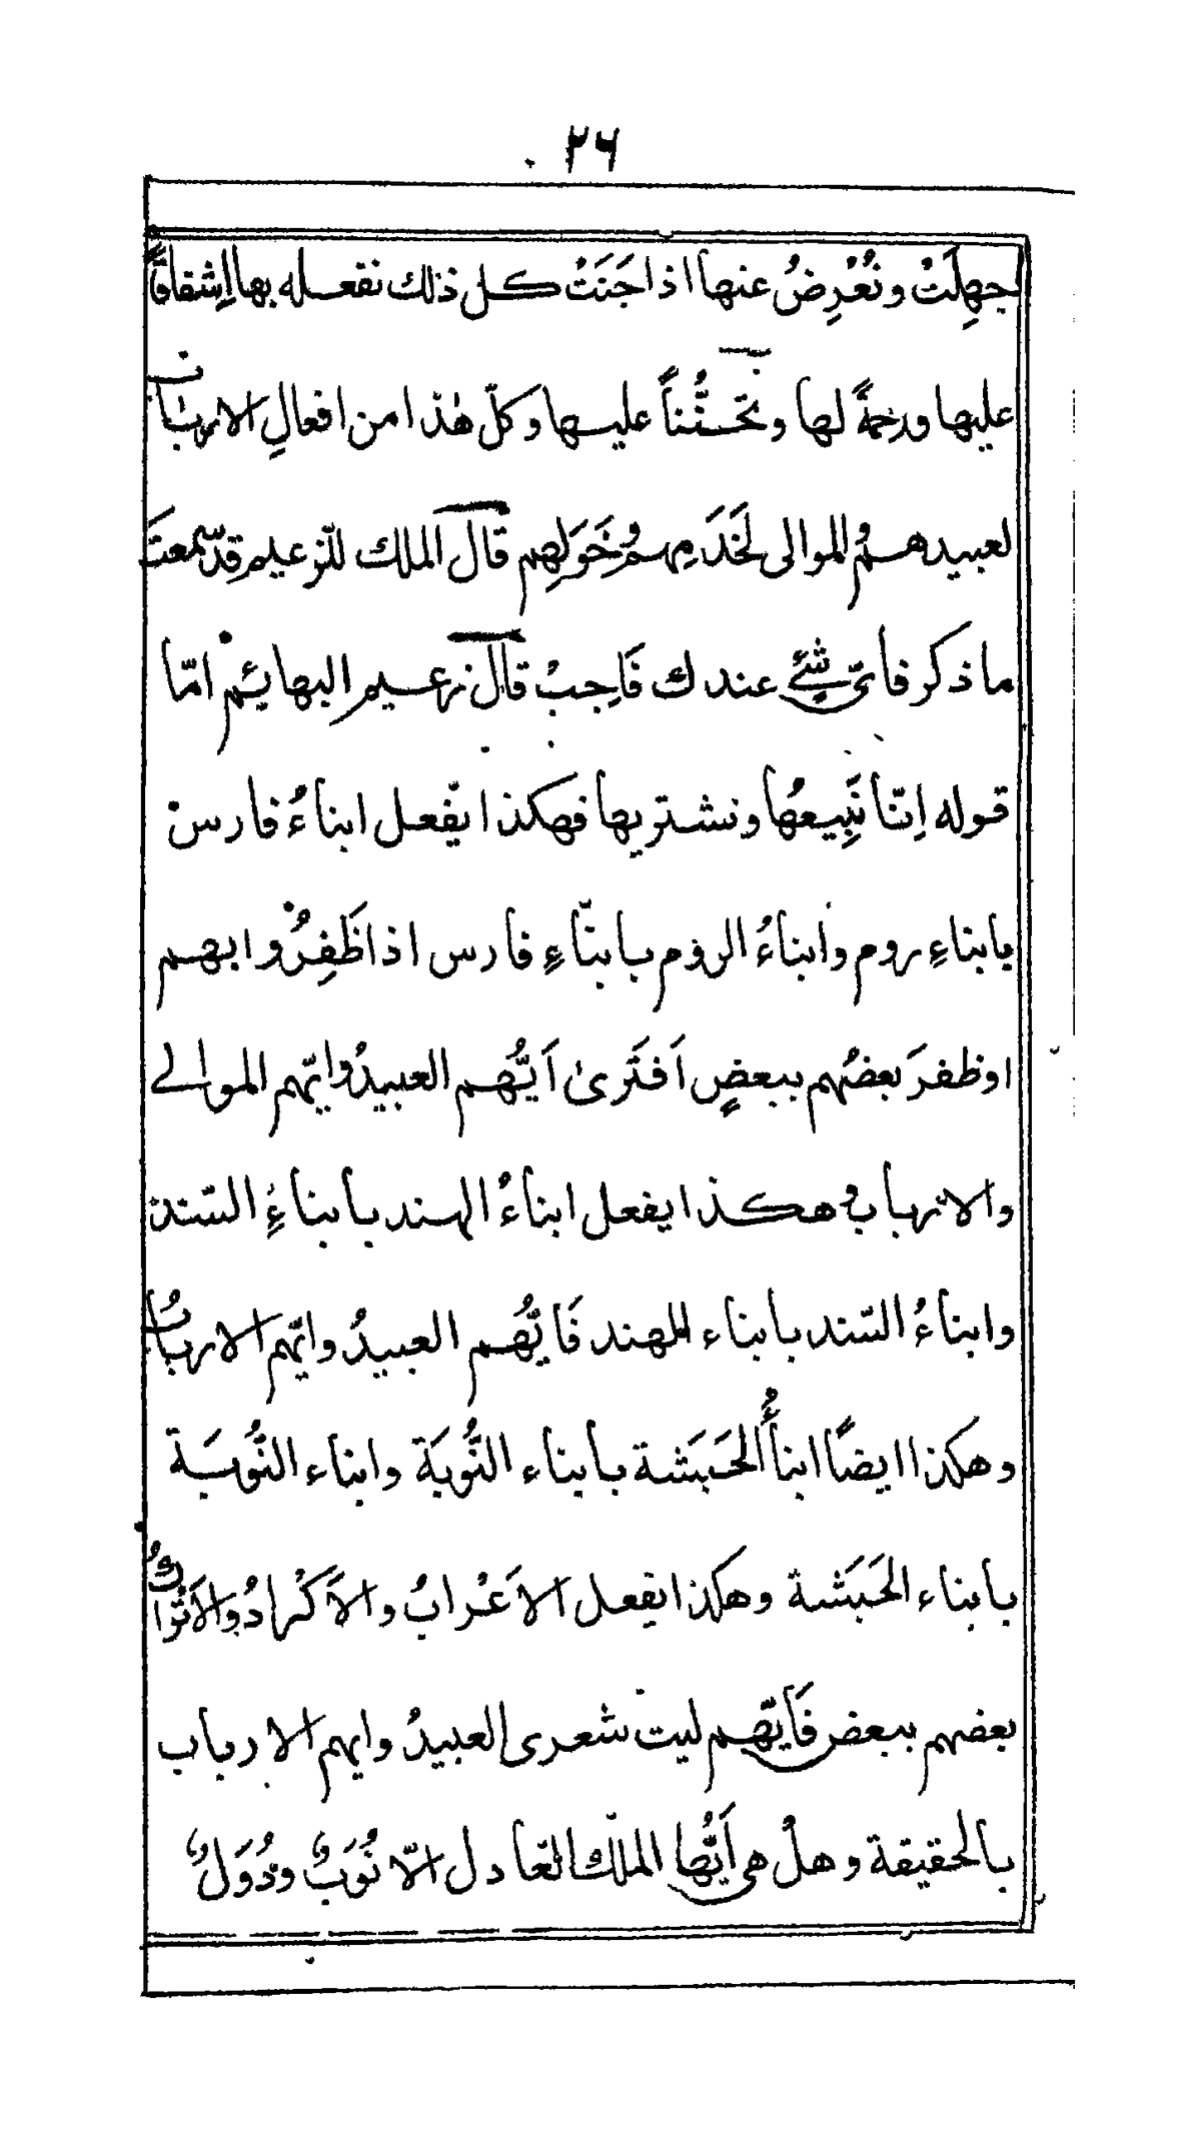 ٢٦
جهِلَتْ ونُعْرِضُ عنها اذا جَنَتْ كل ذلك نفعله بها اِشفاقًا
عليها ورحمةً لها وتحنُّناً عليها وكلّ هٰذا من افعالِ الارباب
لعبيدهم والموالى لخَدَمِهم وخَوَلِهم قال الملك للزعيم قد سمعتَ
ما ذكر فاىّ شئ عندك فَاَجِبْ قال زعيم البهائم امّا
قوله اِنّنا نَبِيعُها ونشتريها فهكذا يفعل ابناءُ فارس
بابناءِ روم وابناءُ الروم بابناءِ فارس اذا ظَفِرُوا بهم
او ظفرَ بعضُهم ببعضٍ اَفتَرىٰ اَيُّهم العبيدُ وايّهم الموالى
والارباب وهكذا يفعل ابناءُ الهند بأبناءِ السّند
وابناءُ السّند بأبناء الهند فَأيُّهم العبيدُ وايّهم الاربابُ
وهكذا ايضًا ابنأُ الحَبَشة بأبناء النُّوبَة وابناء النُّوبَة
بأبناء الحَبَشة وهكذا يفعل الاَعْرابُ والاَكْرادُ والاَتْراكُ
بعضهم ببعض فَأيّهم ليت شعرى العبيدُ وايهم الارباب
بالحقيقة وهلْ هى اَيُّها الملك العادل الاّ نُوَبٌ ودُوَلٌ